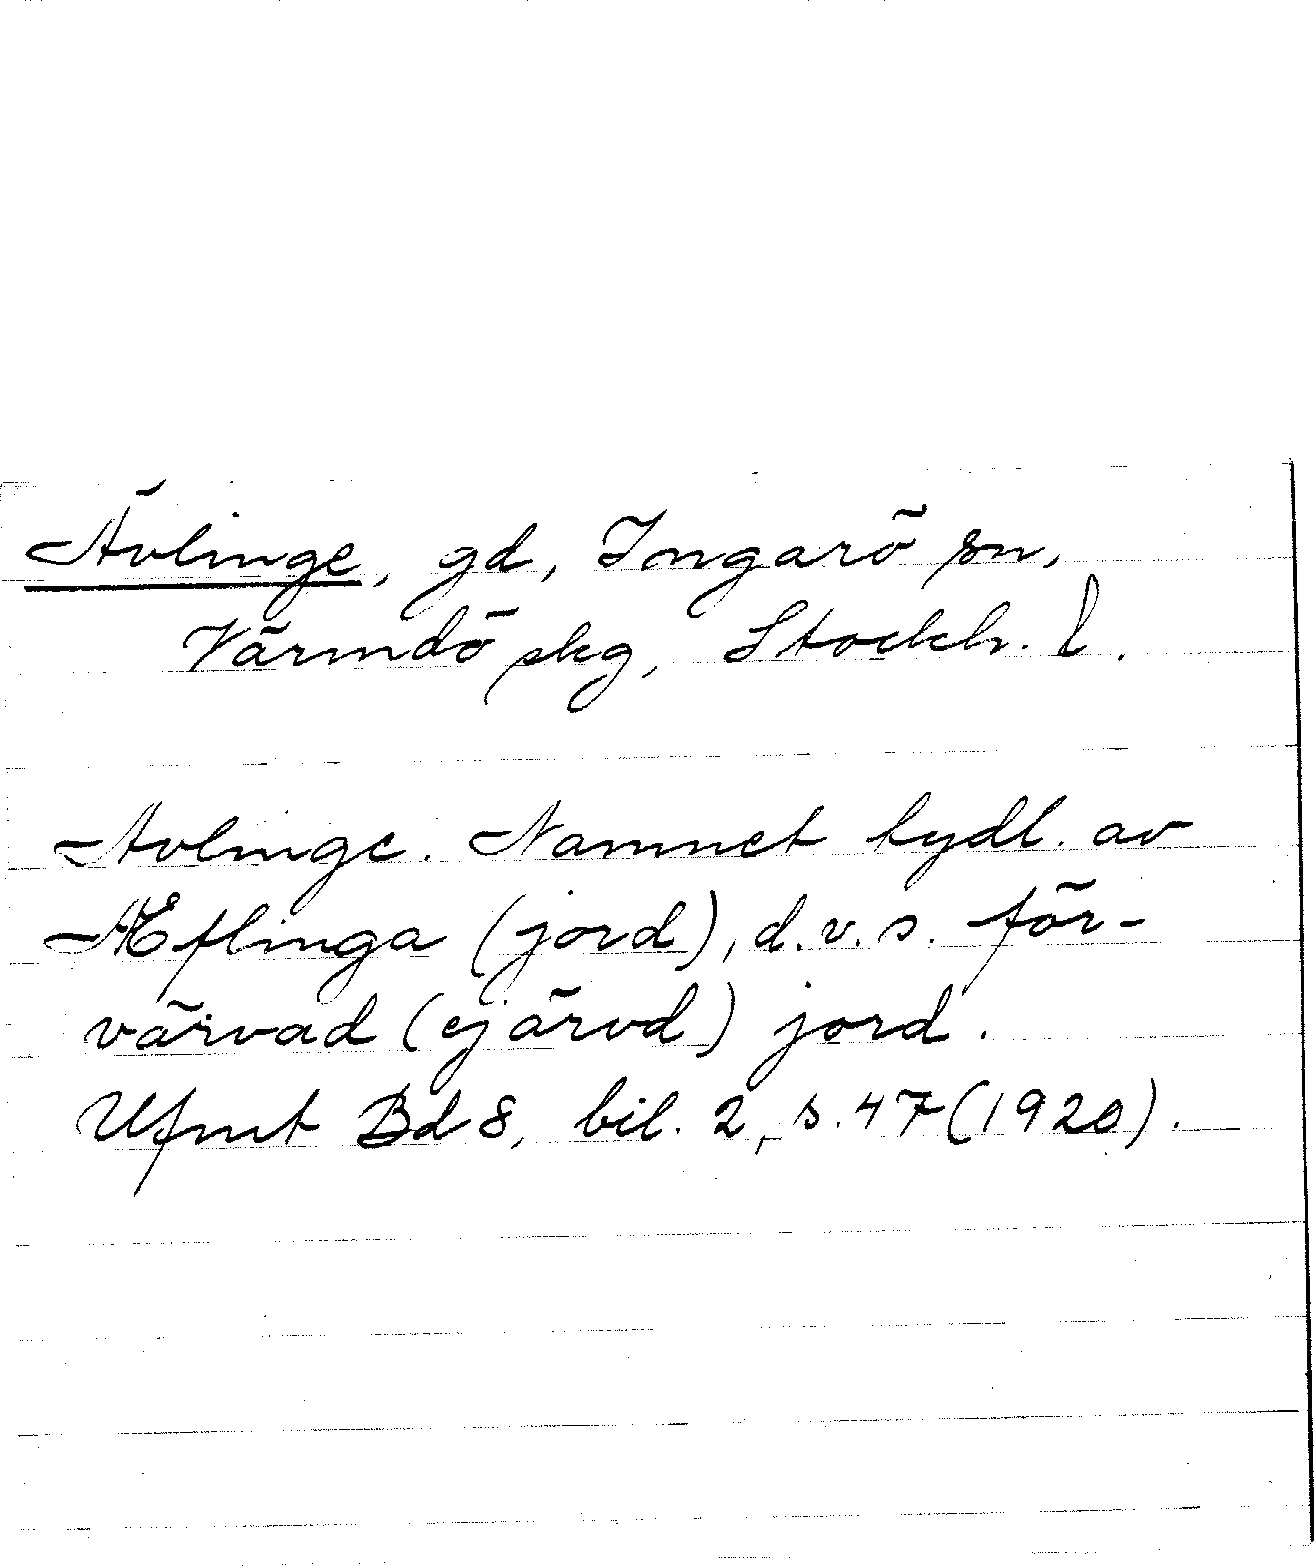 Ävlinge, gd, Ingarö sn,
Värmdö skg, Stockh. l.
Avlinge. Namnet tydl. av
Æflinga (jord), d.v.s. för-
värvad (ej ärvd) jord.
Ufmt Bd 8, bil. 2, s. 47 (1920).